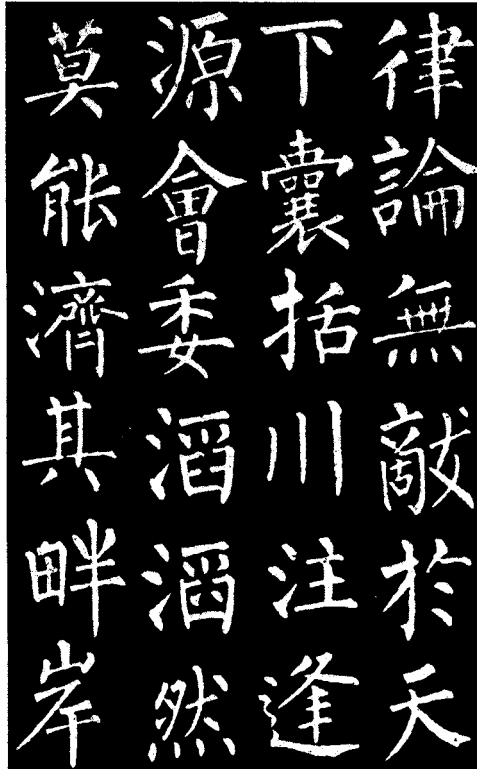 律論無敵於天
下囊括川注逢
源會委滔滔然
莫能濟其畔岸